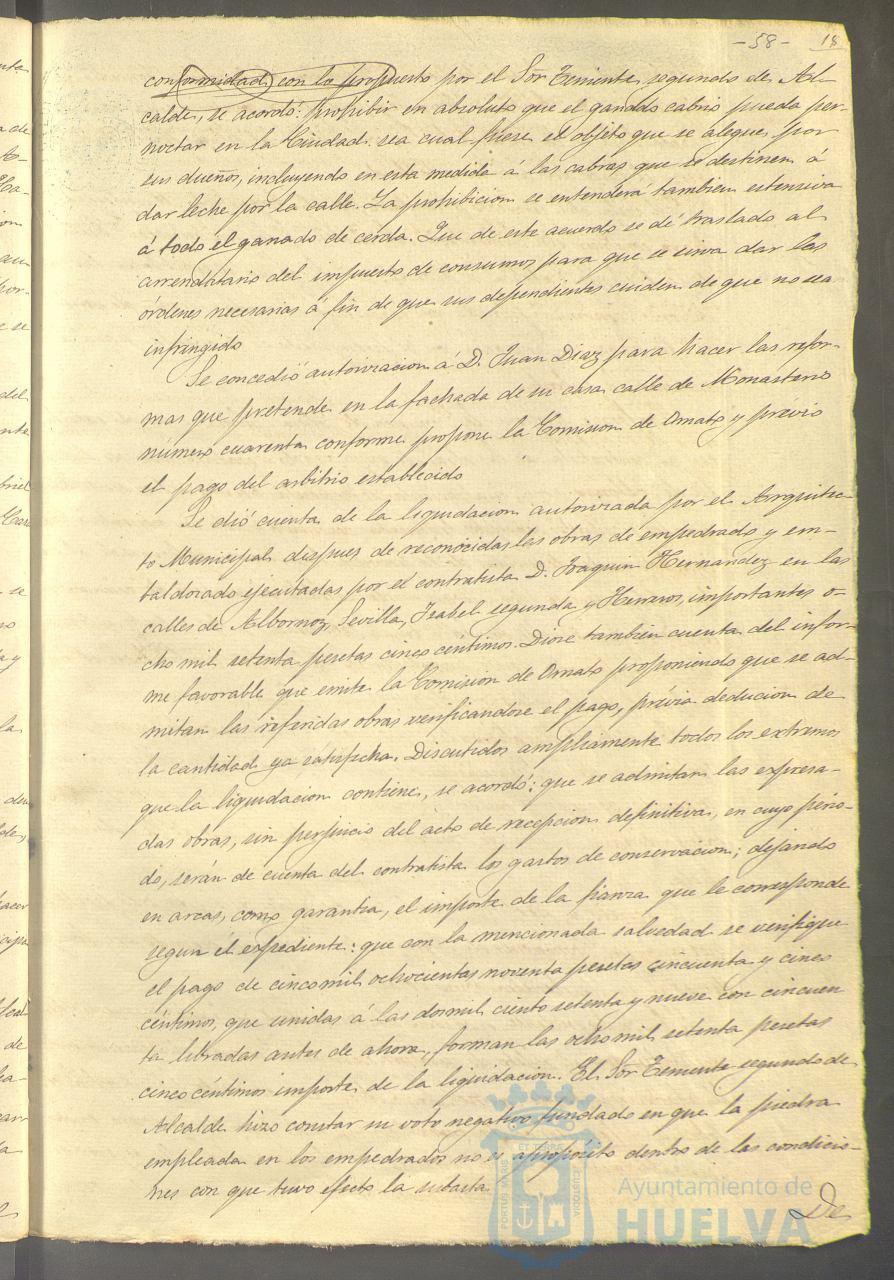 -58- 18
conformidad con lo propuesto por el Sor Teniente segundo de Al-
calde, se acordó: prohibir en absoluto que el ganado cabrio pueda per-
noctar en la Ciudad sea cual fuese el objeto que se alegue por
sus dueños, incluyendo en esta medida á las cabras que se destinen á
dar leche por la calle. La prohibicion se entenderá tambien estensiva
á todo el ganado de cerda. Que de este acuerdo se dé traslado al
arrendatario del impuesto de consumos para que se sirva dar las
órdenes necesarias á fin de que sus dependientes cuiden de que no sea
infringido
Se concedió autorizacion á D. Juan Diaz para hacer las refor-
mas que pretende en la fachada de su casa calle de Monasterio
número cuarenta conforme propone la Comision de Ornato y prévio
el pago del arbitrio establecido
Se dió cuenta de la liquidacion autorizada por el Arquitec-
to Municipal despues de reconocidas las obras de empedrado y em-
baldosado ejecutadas por el contratista D. Joaquin Hernandez en las
calles de Albornoz, Sevilla, Isabel segunda y Herreros, importantes o-
cho mil setenta pesetas cinco céntimos. Diose tambien cuenta del infor-
me favorable que emite la Comision de Ornato proponiendo que se ad-
mitan las referidas obras verificandose el pago, prévia deducion de
la cantidad ya satisfecha. Discutidos ampliamente todos los extremos
que la liquidacion contiene, se acordó: que se admitan las expresa-
das obras, sin perjuicio del acto de recepcion definitiva, en cuyo perio-
do, serán de cuenta del contratista los gastos de conservacion; dejando
en arcas, como garantia, el importe de la fianza que le corresponde
segun el expediente: que con la mencionada salvedad se verifique
el pago de cinco mil ochocientas noventa pesetas cincuenta y cinco
céntimos, que unidas á las dos mil ciento setenta y nueve con cincuen
ta libradas antes de ahora, forman las ocho mil setenta pesetas
cinco céntimos importe de la liquidacion. El Sor Teniente segundo de
Alcalde hizo constar su voto negativo fundado en que la piedra
empleada en los empedrados no es apropósito dentro de las condicio-
nes con que tuvo efecto la subasta.
De
Ayuntamiento de
HUELVA